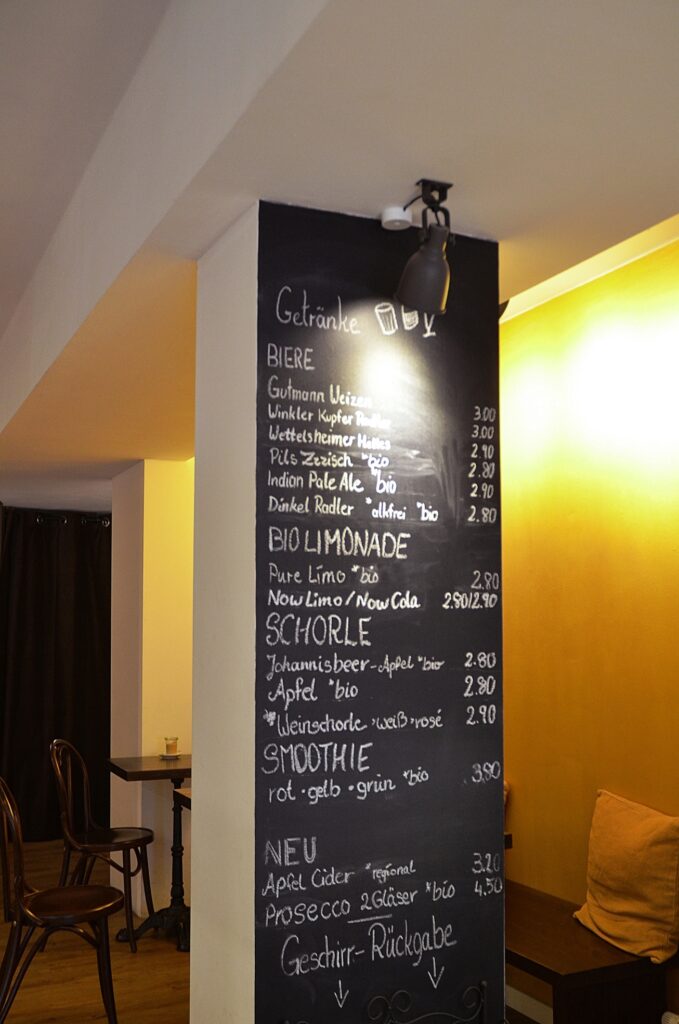 Getränke
BIERE
Gutmann Weizen 3.00
Winkler Kupfer Radler 3.00
Wettelsheimer Helles 2.90
Pils Zzzisch *bio 2.80
Indian Pale Ale *bio 2.90
Dinkel Radler *alkfrei *bio 2.80
BIO LIMONADE
Pure Limo *bio 2.80
Now Limo / Now Cola 2.80/2.90
SCHORLE
Johannisbeer-Apfel *bio 2.80
Apfel *bio 2.80
*Weinschorle, weiß, rosé 2.90
SMOOTHIE
rot · gelb · grün *bio 3.90
NEU
Apfel Cider *regional 3.20
Prosecco 2 Gläser *bio 4.50
Geschirr-Rückgabe